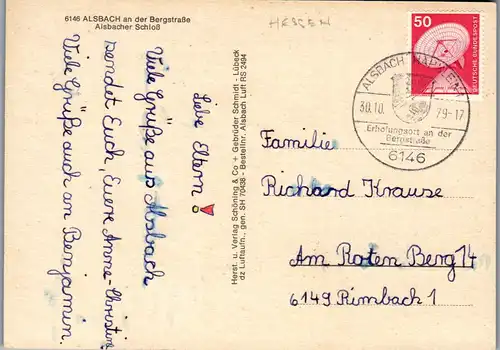 6146 ALSBACH an der Bergstraße
Alsbacher Schloß
HESSEN
Liebe Eltern!
Viele Grüße aus Alsbach
sendet Euch, Euere Anne-Christine
Viele Grüße auch an Benjamin.
Herst. u. Verlag Schöning & Co + Gebrüder Schmidt - Lübeck
dz Luftaufn., gen. SH 70436 - Bestellnr. Alsbach Luft RS 2494
50
DEUTSCHE BUNDESPOST
ALSBACH
30.10. 79-17
Erholungsort an der
Bergstraße
6146
Familie
Richard Krause
Am Roten Berg 14
6149 Rimbach 1